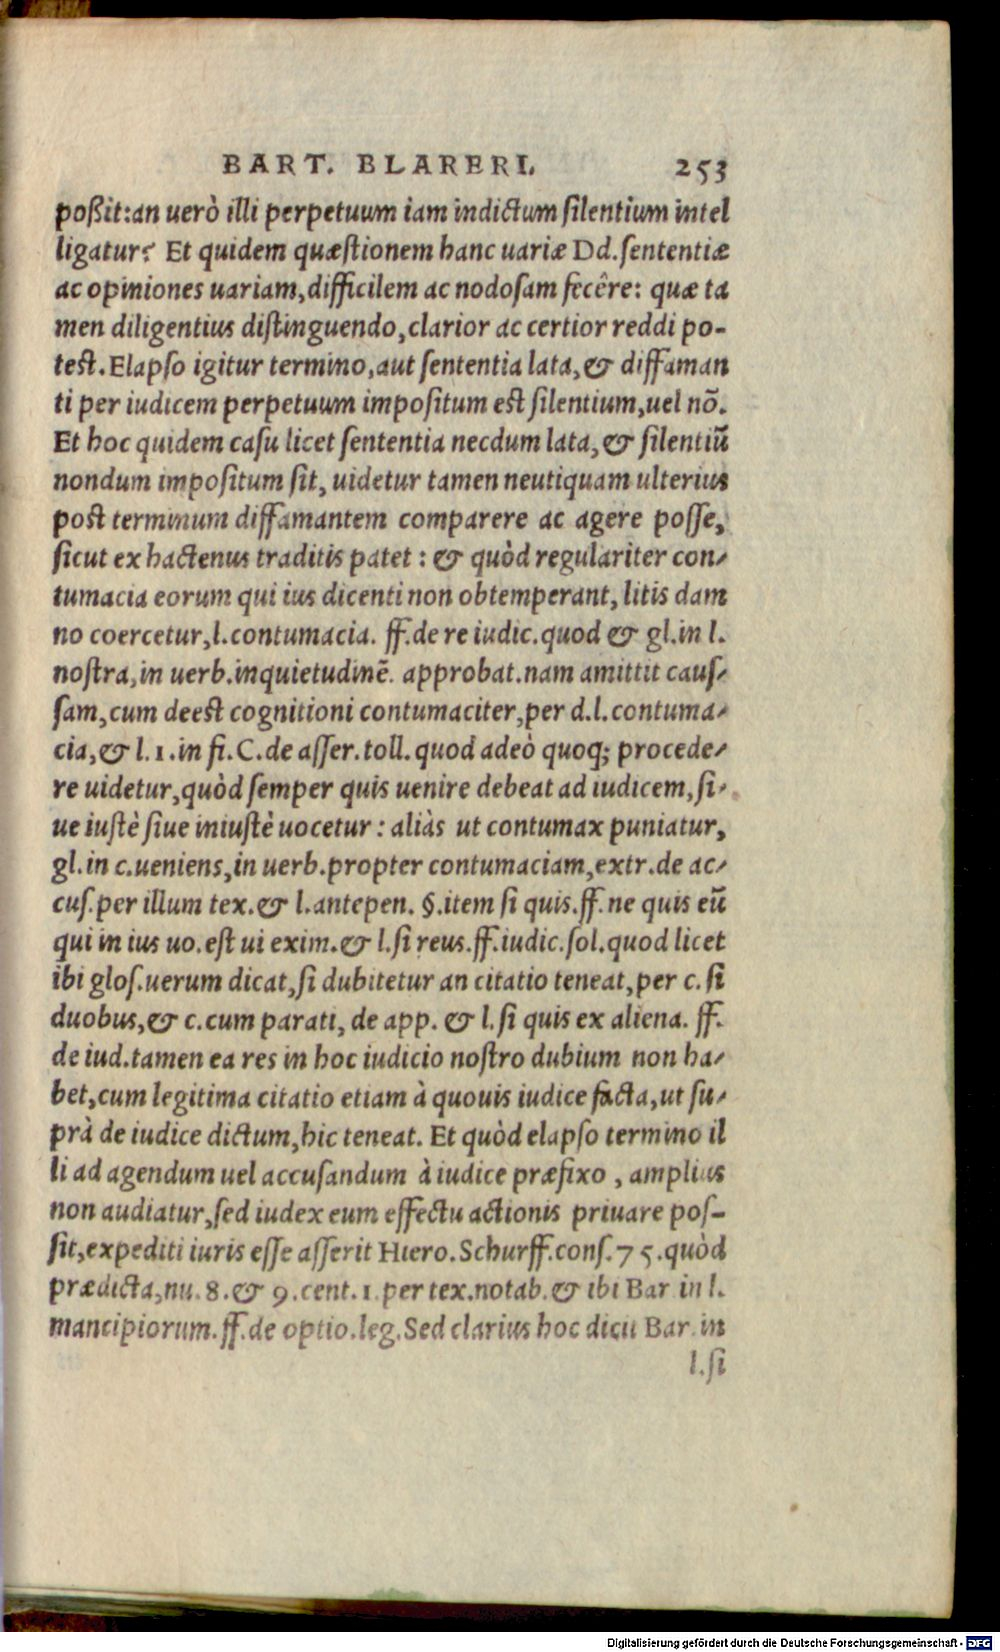 BART. BLARERI. 253
poßit:an uerò illi perpetuum iam indictum silentium intel
ligatur? Et quidem quæstionem hanc uariæ Dd. sententiæ
ac opiniones uariam, difficilem ac nodosam fecêre: quæ ta
men diligentius distinguendo, clarior ac certior reddi po-
test. Elapso igitur termino, aut sententia lata, & diffaman
ti per iudicem perpetuum impositum est silentium, uel nõ.
Et hoc quidem casu licet sententia necdum lata, & silentiũ
nondum impositum sit, uidetur tamen neutiquam ulterius
post terminum diffamantem comparere ac agere posse,
sicut ex hactenus traditis patet : & quòd regulariter con-
tumacia eorum qui ius dicenti non obtemperant, litis dam
no coercetur, l. contumacia. ff. de re iudic. quod & gl. in l.
nostra, in uerb. inquietudinẽ. approbat. nam amittit caus-
sam, cum deest cognitioni contumaciter, per d. l. contuma-
cia, & l. 1. in fi. C. de asser. toll. quod adeò quoq; procede-
re uidetur, quòd semper quis uenire debeat ad iudicem, si-
ue iustè siue iniustè uocetur : aliàs ut contumax puniatur,
gl. in c. ueniens, in uerb. propter contumaciam, extr. de ac-
cus. per illum tex. & l. antepen. §. item si quis. ff. ne quis eũ
qui in ius uo. est ui exim. & l. si reus. ff. iudic. sol. quod licet
ibi glos. uerum dicat, si dubitetur an citatio teneat, per c. si
duobus, & c. cum parati, de app. & l. si quis ex aliena. ff.
de iud. tamen ea res in hoc iudicio nostro dubium non ha-
bet, cum legitima citatio etiam à quouis iudice facta, ut su-
prà de iudice dictum, hic teneat. Et quòd elapso termino il
li ad agendum uel accusandum à iudice præfixo , amplius
non audiatur, sed iudex eum effectu actionis priuare pos-
sit, expediti iuris esse asserit Hiero. Schurff. cons. 75. quòd
prædicta, nu. 8. & 9. cent. 1. per tex. notab. & ibi Bar. in l.
mancipiorum. ff. de optio. leg. Sed clarius hoc dicit Bar. in
l. si
Digitalisierung gefördert durch die Deutsche Forschungsgemeinschaft - DFG